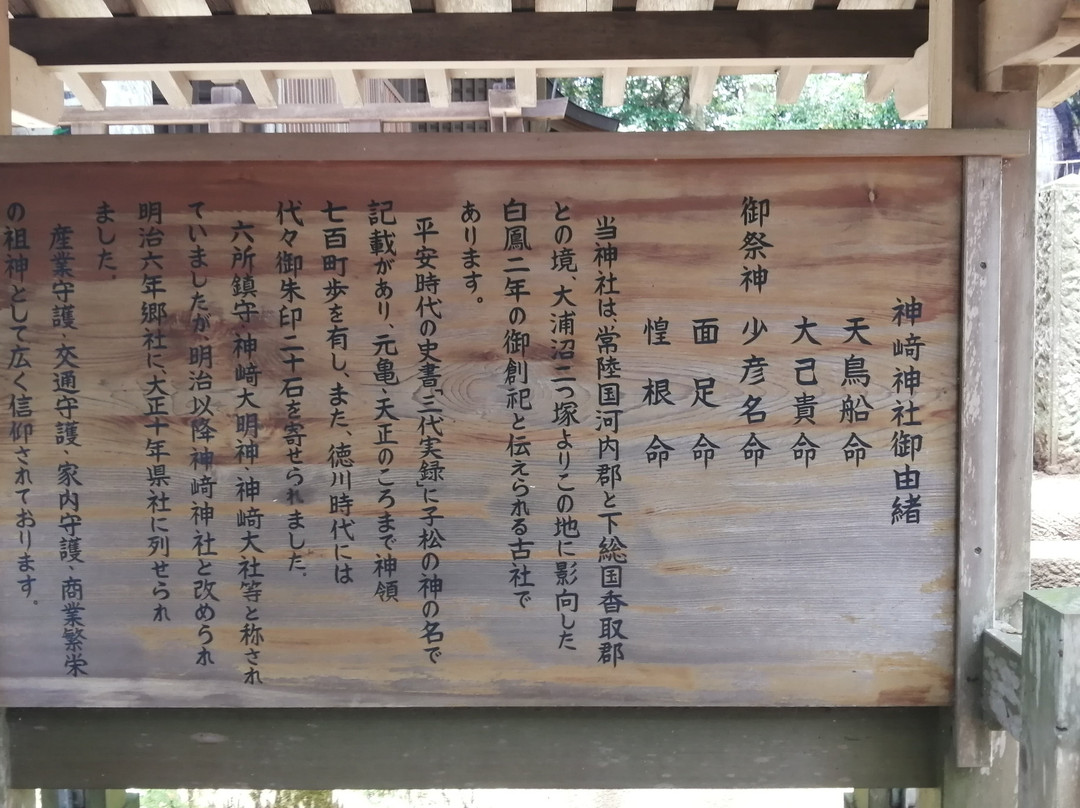 神崎神社御由緒
天鳥船命
大己貴命
御祭神 少彦名命
面足命
惶根命
当神社は、常陸国河内郡と下総国香取郡
との境、大浦沼二つ塚よりこの地に影向した
白鳳二年の御創祀と伝えられる古社で
あります。
平安時代の史書「三代実録」に子松の神の名で
記載があり、元亀、天正のころまで神領
七百町歩を有し、また、徳川時代には
代々御朱印二十石を寄せられました。
六所鎮守、神崎大明神、神崎大社等と称され
ていましたが、明治以降神崎神社と改められ
明治六年郷社に大正十年県社に列せられ
ました。
産業守護、交通守護、家内守護、商業繁栄
の祖神として広く信仰されております。